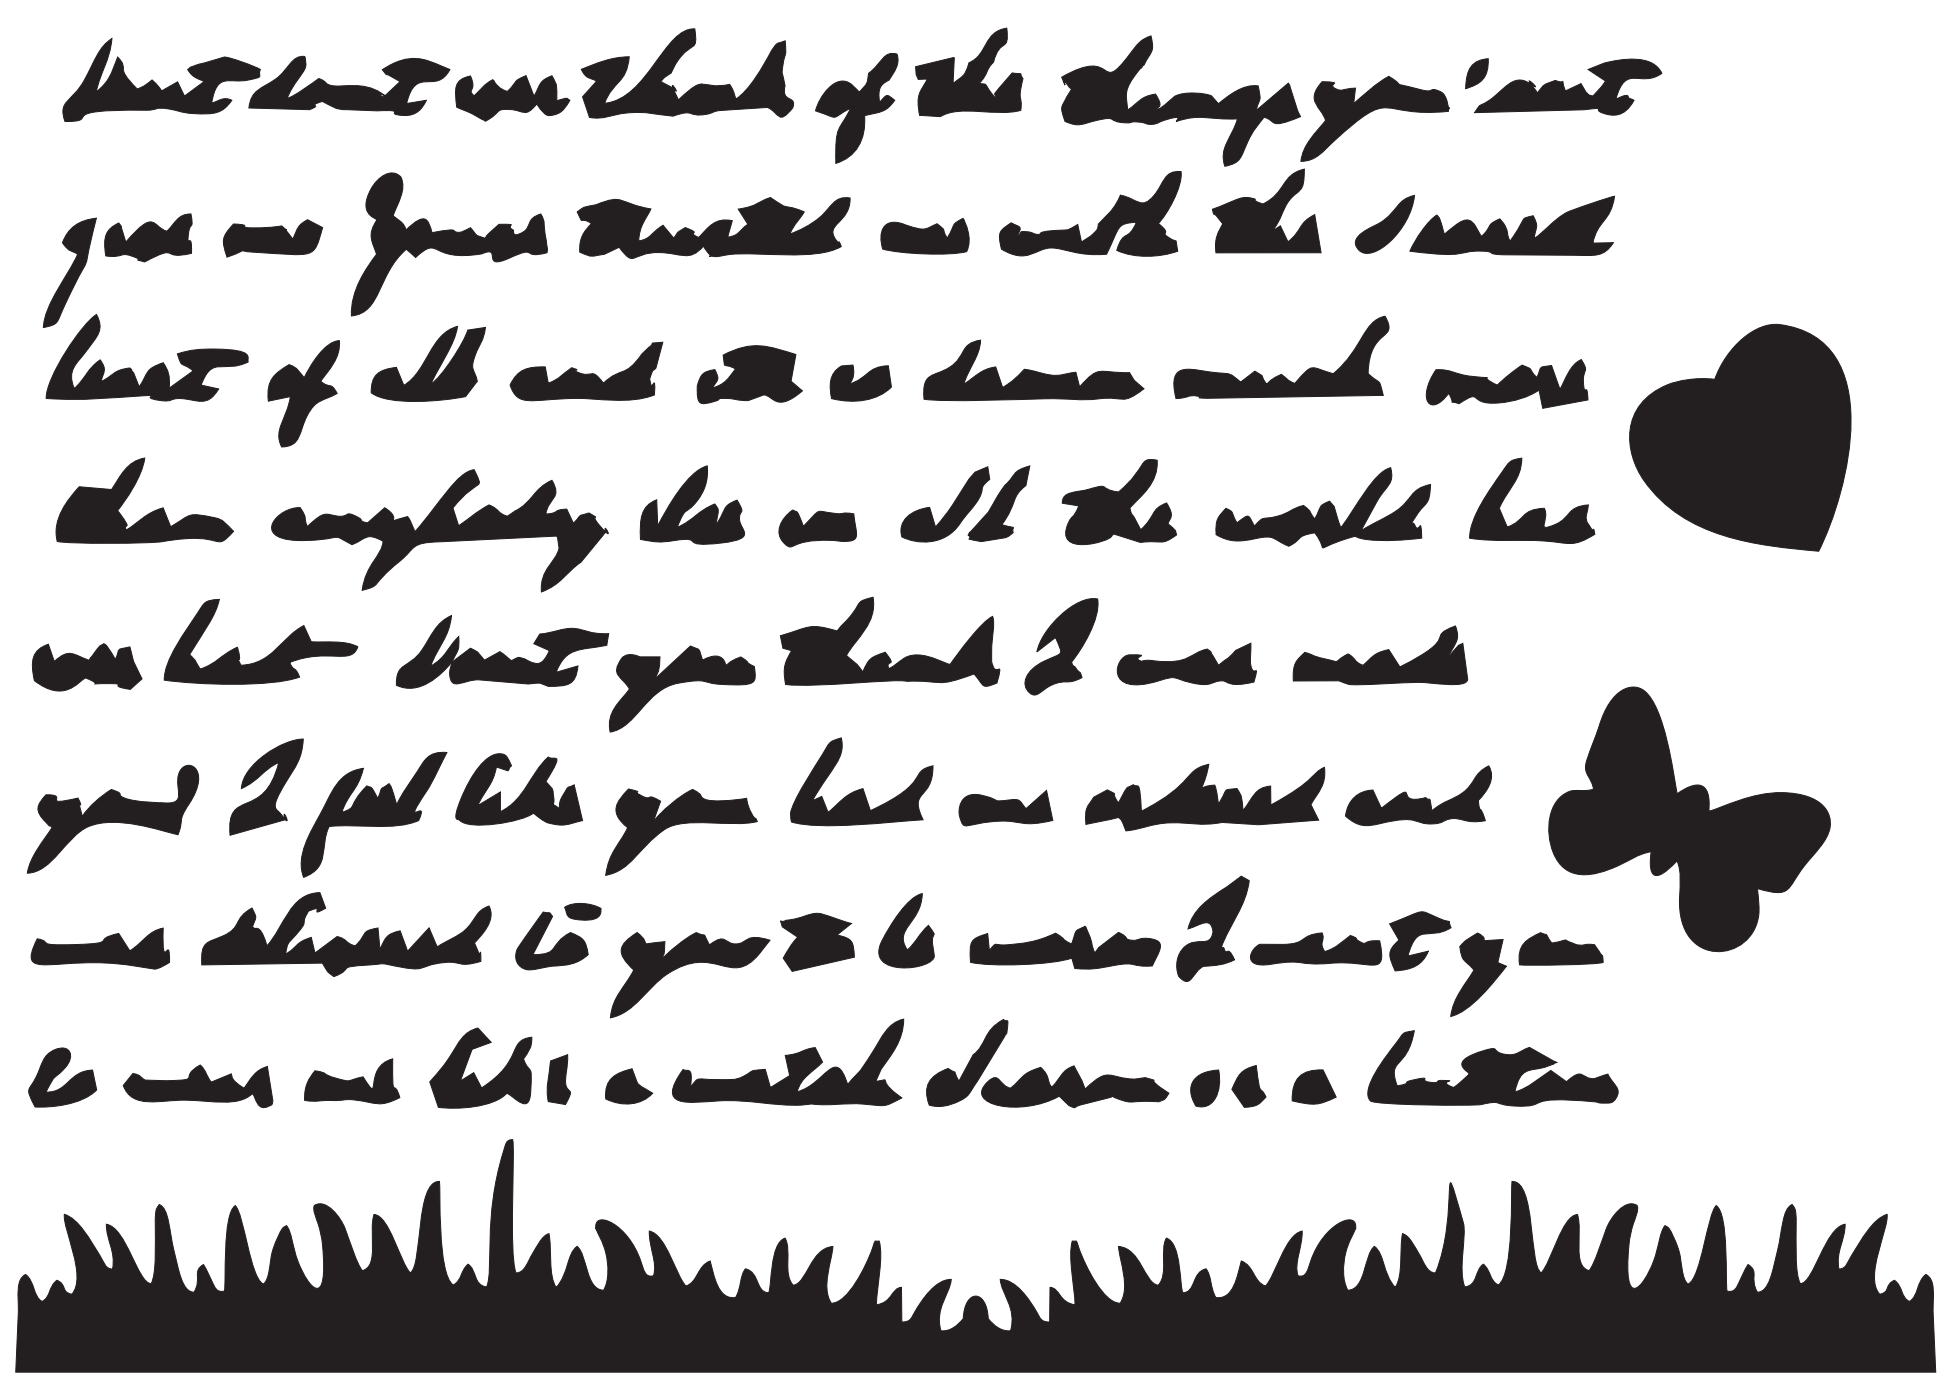 but don't ever think of the things you can't
give me You've trusted me with the dearest
heart of all and it's so damn much more
than anybody else in all the world has
ever had don't you think I was made
you I feel like you had me ordered and
was delivered to you to be worn I want you
to wear me like a watch charm or a button